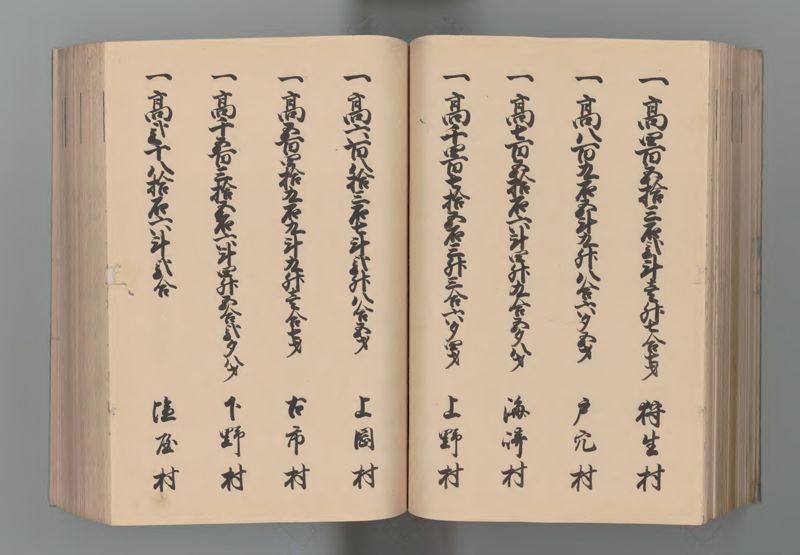 一高四百五拾三石弐斗壱升七合七才 狩生村
一高八百九石五斗九升八合六夕五才 戸穴村
一高七百五拾石六斗四升九合五夕八才 海崎村
一高千四百七拾五石三升三合六夕四才 上野村
一高六百八拾三石七斗弐升八合五才 上岡村
一高五百四拾九石九斗九升壱合七才 古市村
一高千五百三拾五石六斗四升五合弐夕八才 下野村
一高弐千八拾石六斗弐合 村